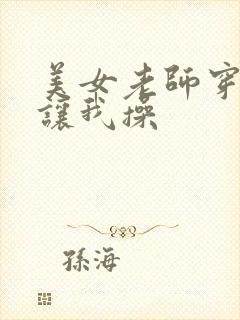 美女老師穿
讓我操
孫海